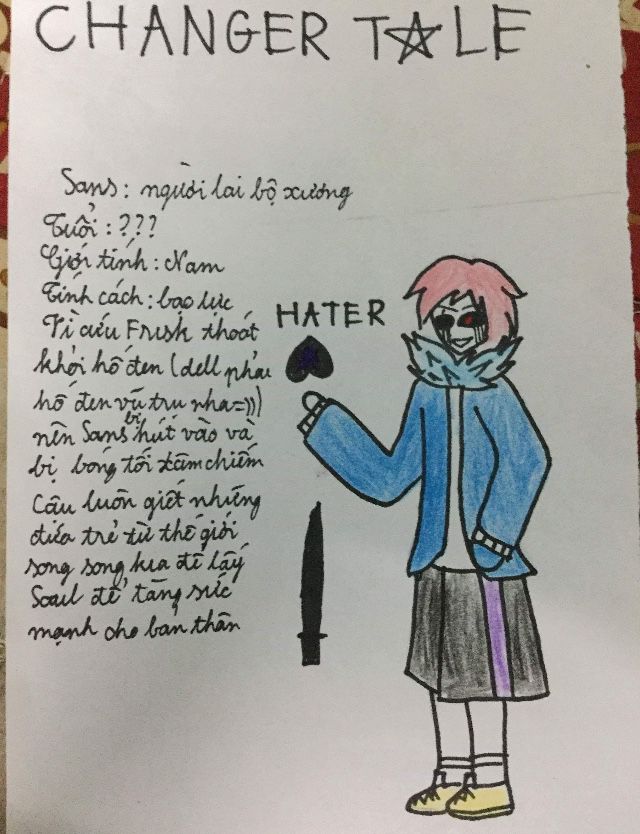 CHANGER TALE
Sans: người lai bộ xương
Tuổi: ???
Giới tính: Nam
Tính cách: bạo lực
HATER
Vì cứu Frisk thoát
khỏi hố đen (dell phải
hố đen vũ trụ nha=)))
nên Sans bị hút vào và
bị bóng tối xâm chiếm
Cậu luôn giết những
đứa trẻ từ thế giới
song song kia để lấy
Soul để tăng sức
mạnh cho bản thân